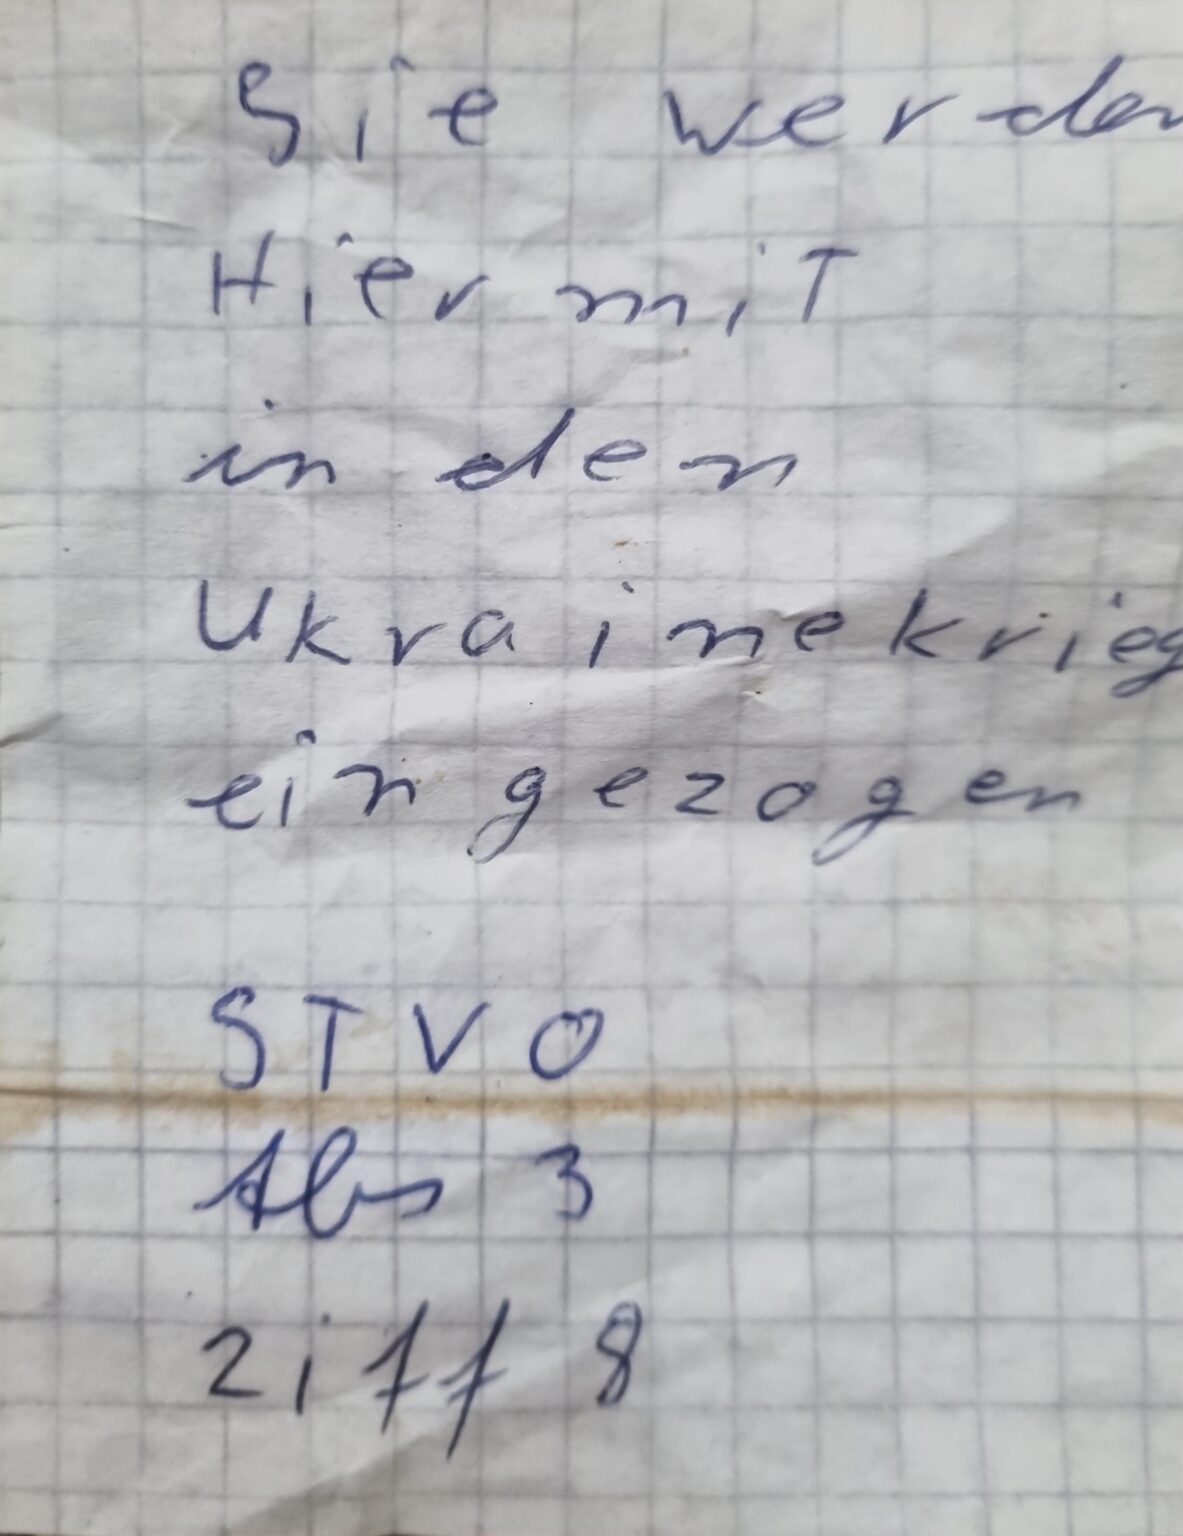 Sie werden
Hiermit
in den
Ukrainekrieg
eingezogen
STVO
Abs 3
Ziff 8